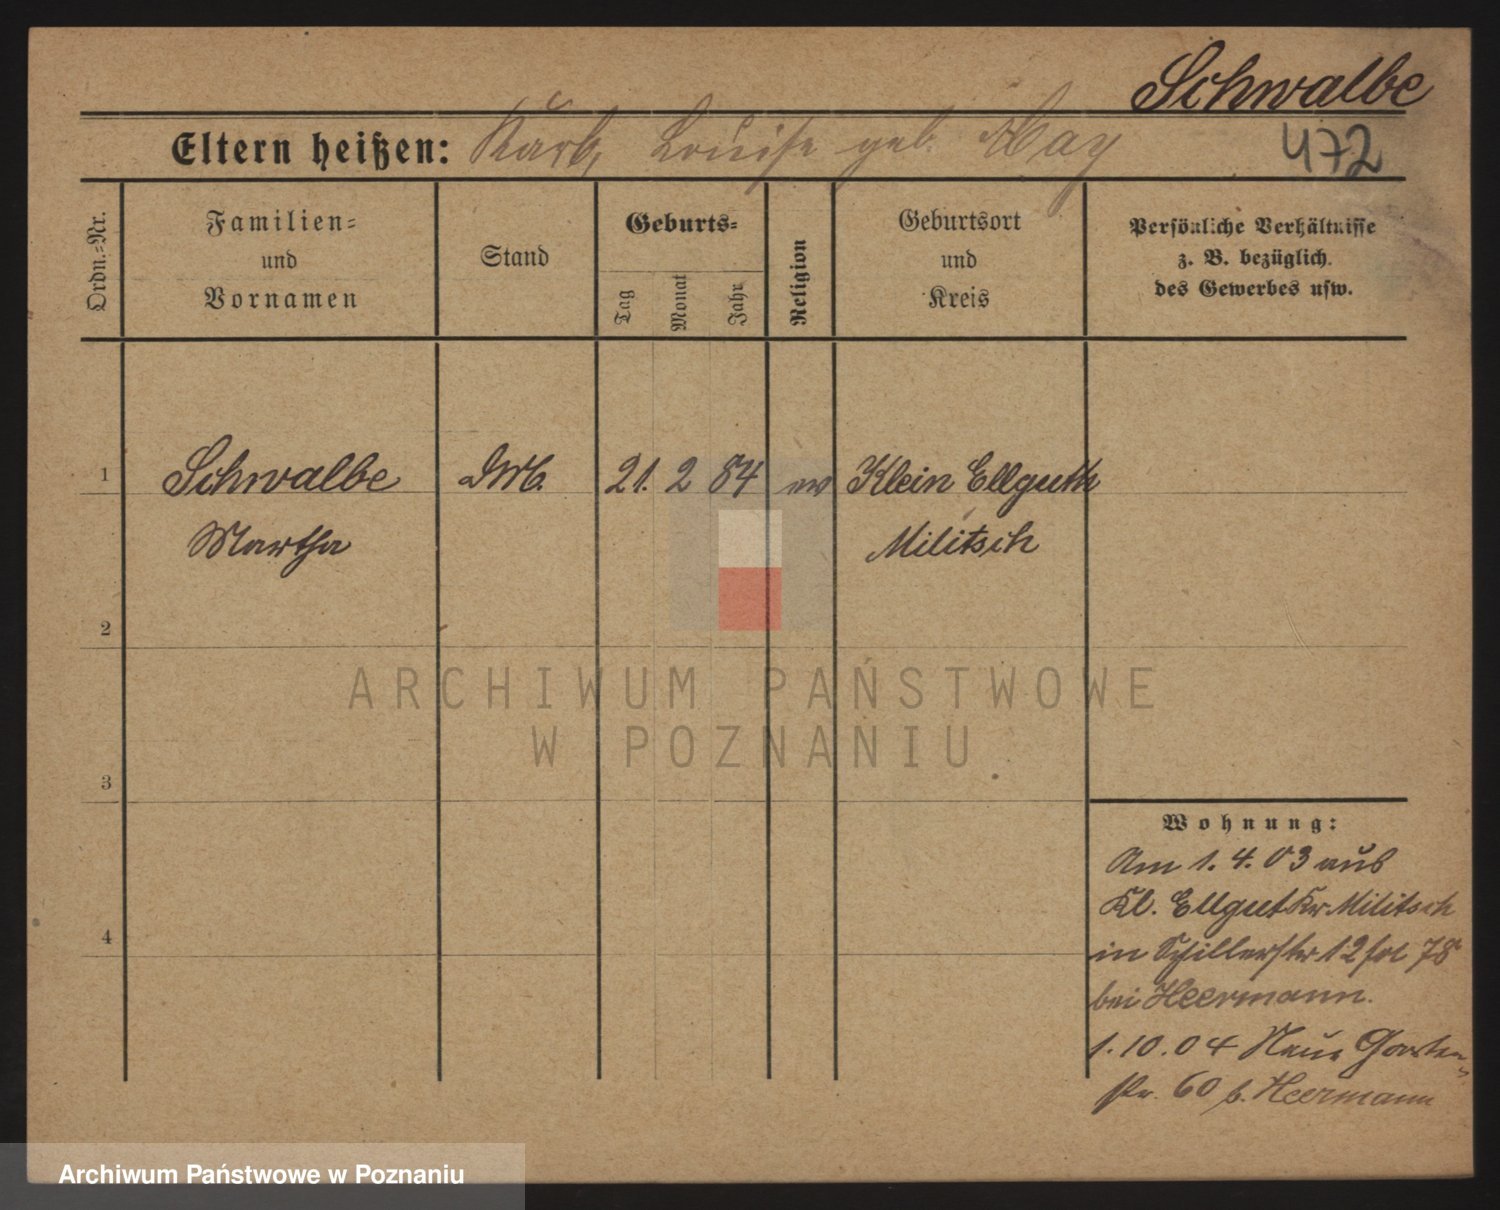 Schwalbe
Eltern heißen: Karl, Louise geb. May
472
Ordn.=Nr.
Familien=
und
Vornamen
Stand
Geburts=
Tag
Monat
Jahr
Religion
Geburtsort
und
Kreis
Persönliche Verhältnisse
z. B. bezüglich
des Gewerbes usw.
1
Schwalbe
21. 2 84
ev
Klein Ellguth
Martha
Militsch
2
3
4
Wohnung:
Am 1. 4. 03 aus
Kl. Ellgut Kr Militsch
in Schillerstr 12 fol 78
bei Heermann.
1. 10. 04 Neue Garten=
str. 60 b. Heermann
ARCHIWUM PAŃSTWOWE
W POZNANIU
Archiwum Państwowe w Poznaniu